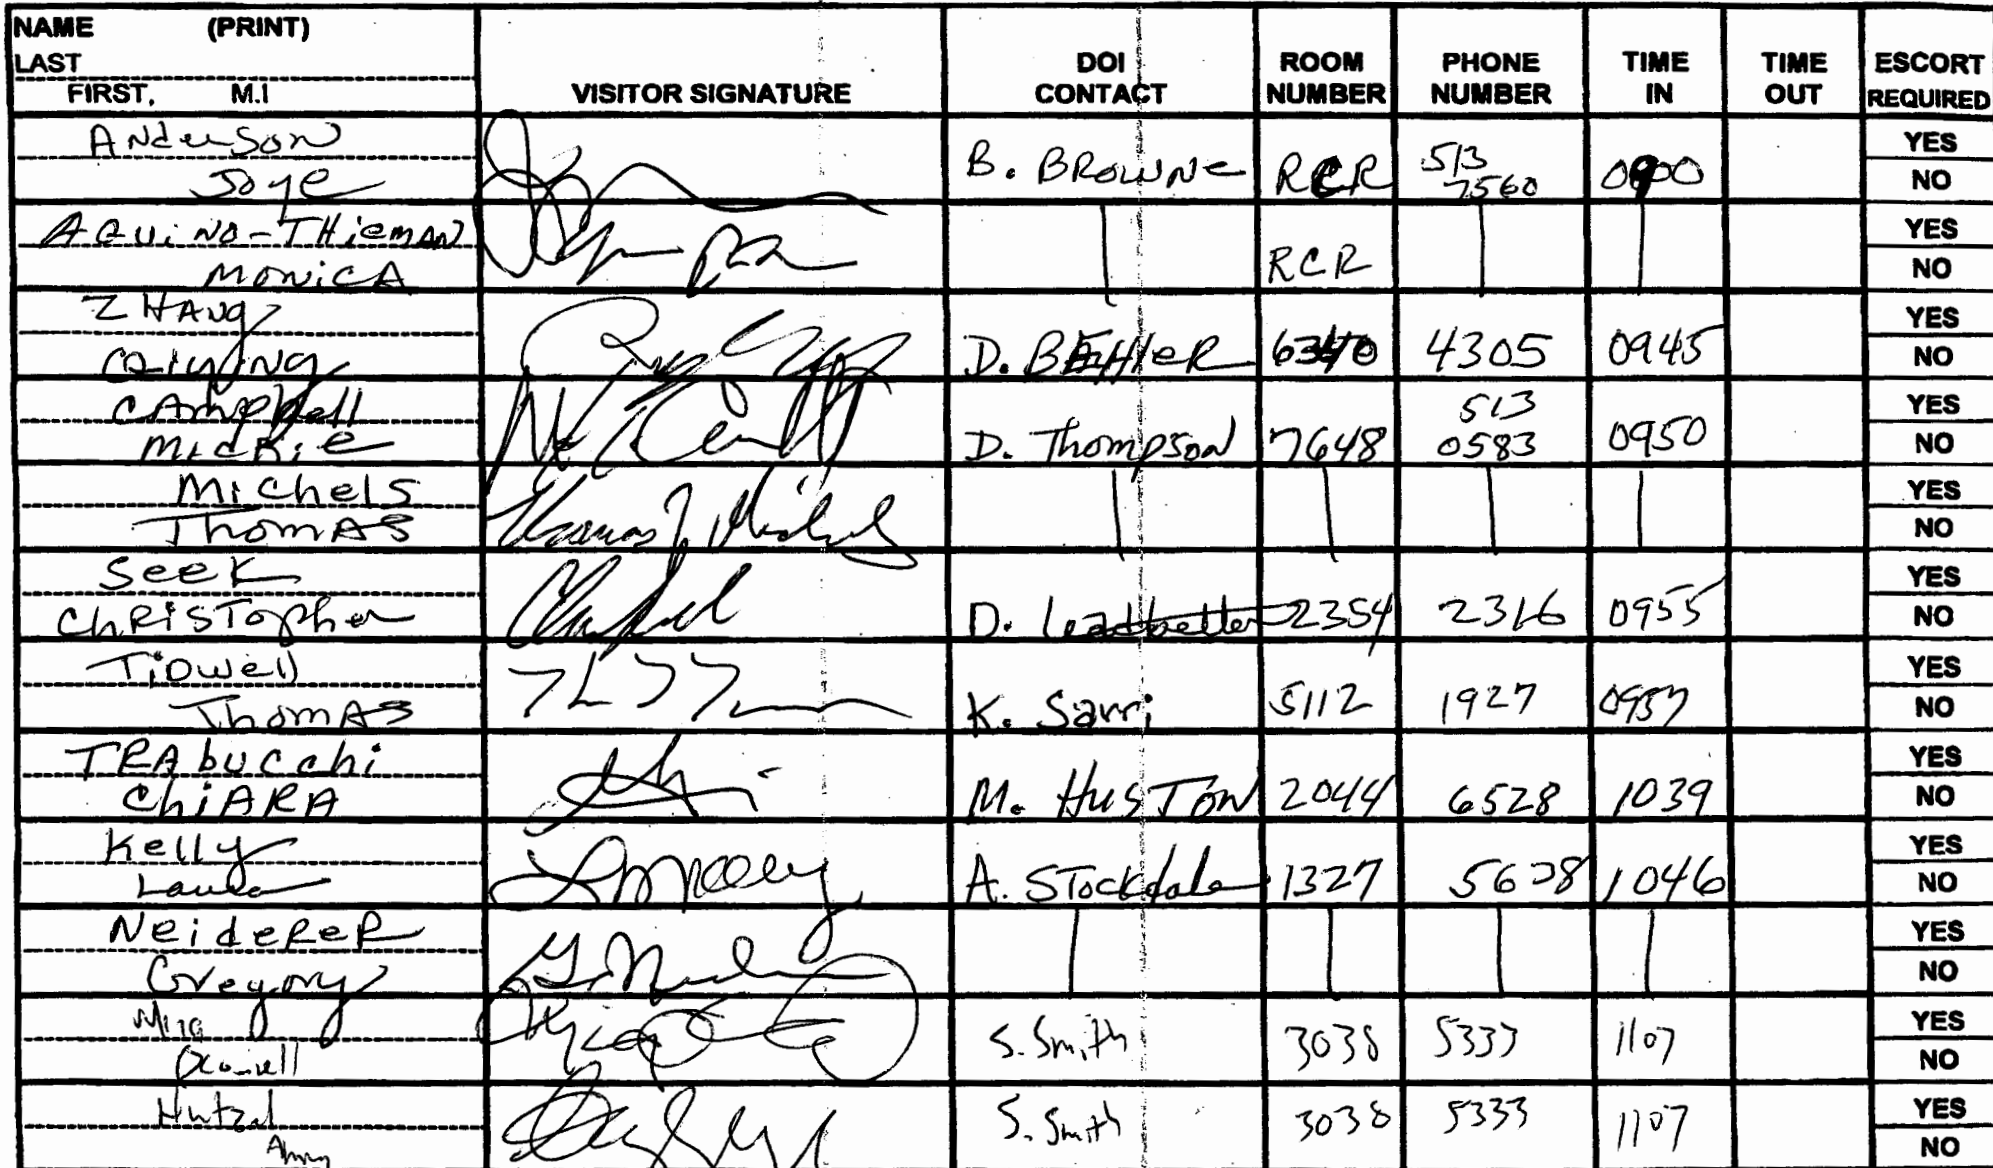 NAME (PRINT)
LAST
FIRST, M.I
VISITOR SIGNATURE
DOI CONTACT
ROOM NUMBER
PHONE NUMBER
TIME IN
TIME OUT
ESCORT REQUIRED
Anderson
Joye
B. BROWNE RCR 513 7560 0900 YES NO
AQUiNO-THiemAN
MONiCA
RCR YES NO
ZHANg
D. BEHleR 4305 0945 YES NO
CAmpbell
MicKie
D. Thompson 7648 513 0583 0950 YES NO
Michels
ThomAS
Thomas J Michels
YES NO
SeeK
ChRiSTopher
D. Leadbetter 2354 2316 0955 YES NO
TiDwell
ThomAS
K. Sarri 5112 1927 0957 YES NO
TRAbucchi
ChiARA
M. HUSTON 2044 6528 1039 YES NO
Kelly
Laura
A. STockdale 1327 5628 1046 YES NO
NeideReR
Gregory
YES NO
S. Smith 3038 5333 1107 YES NO
Hutzal
Amy
S. Smith 3038 5333 1107 YES NO